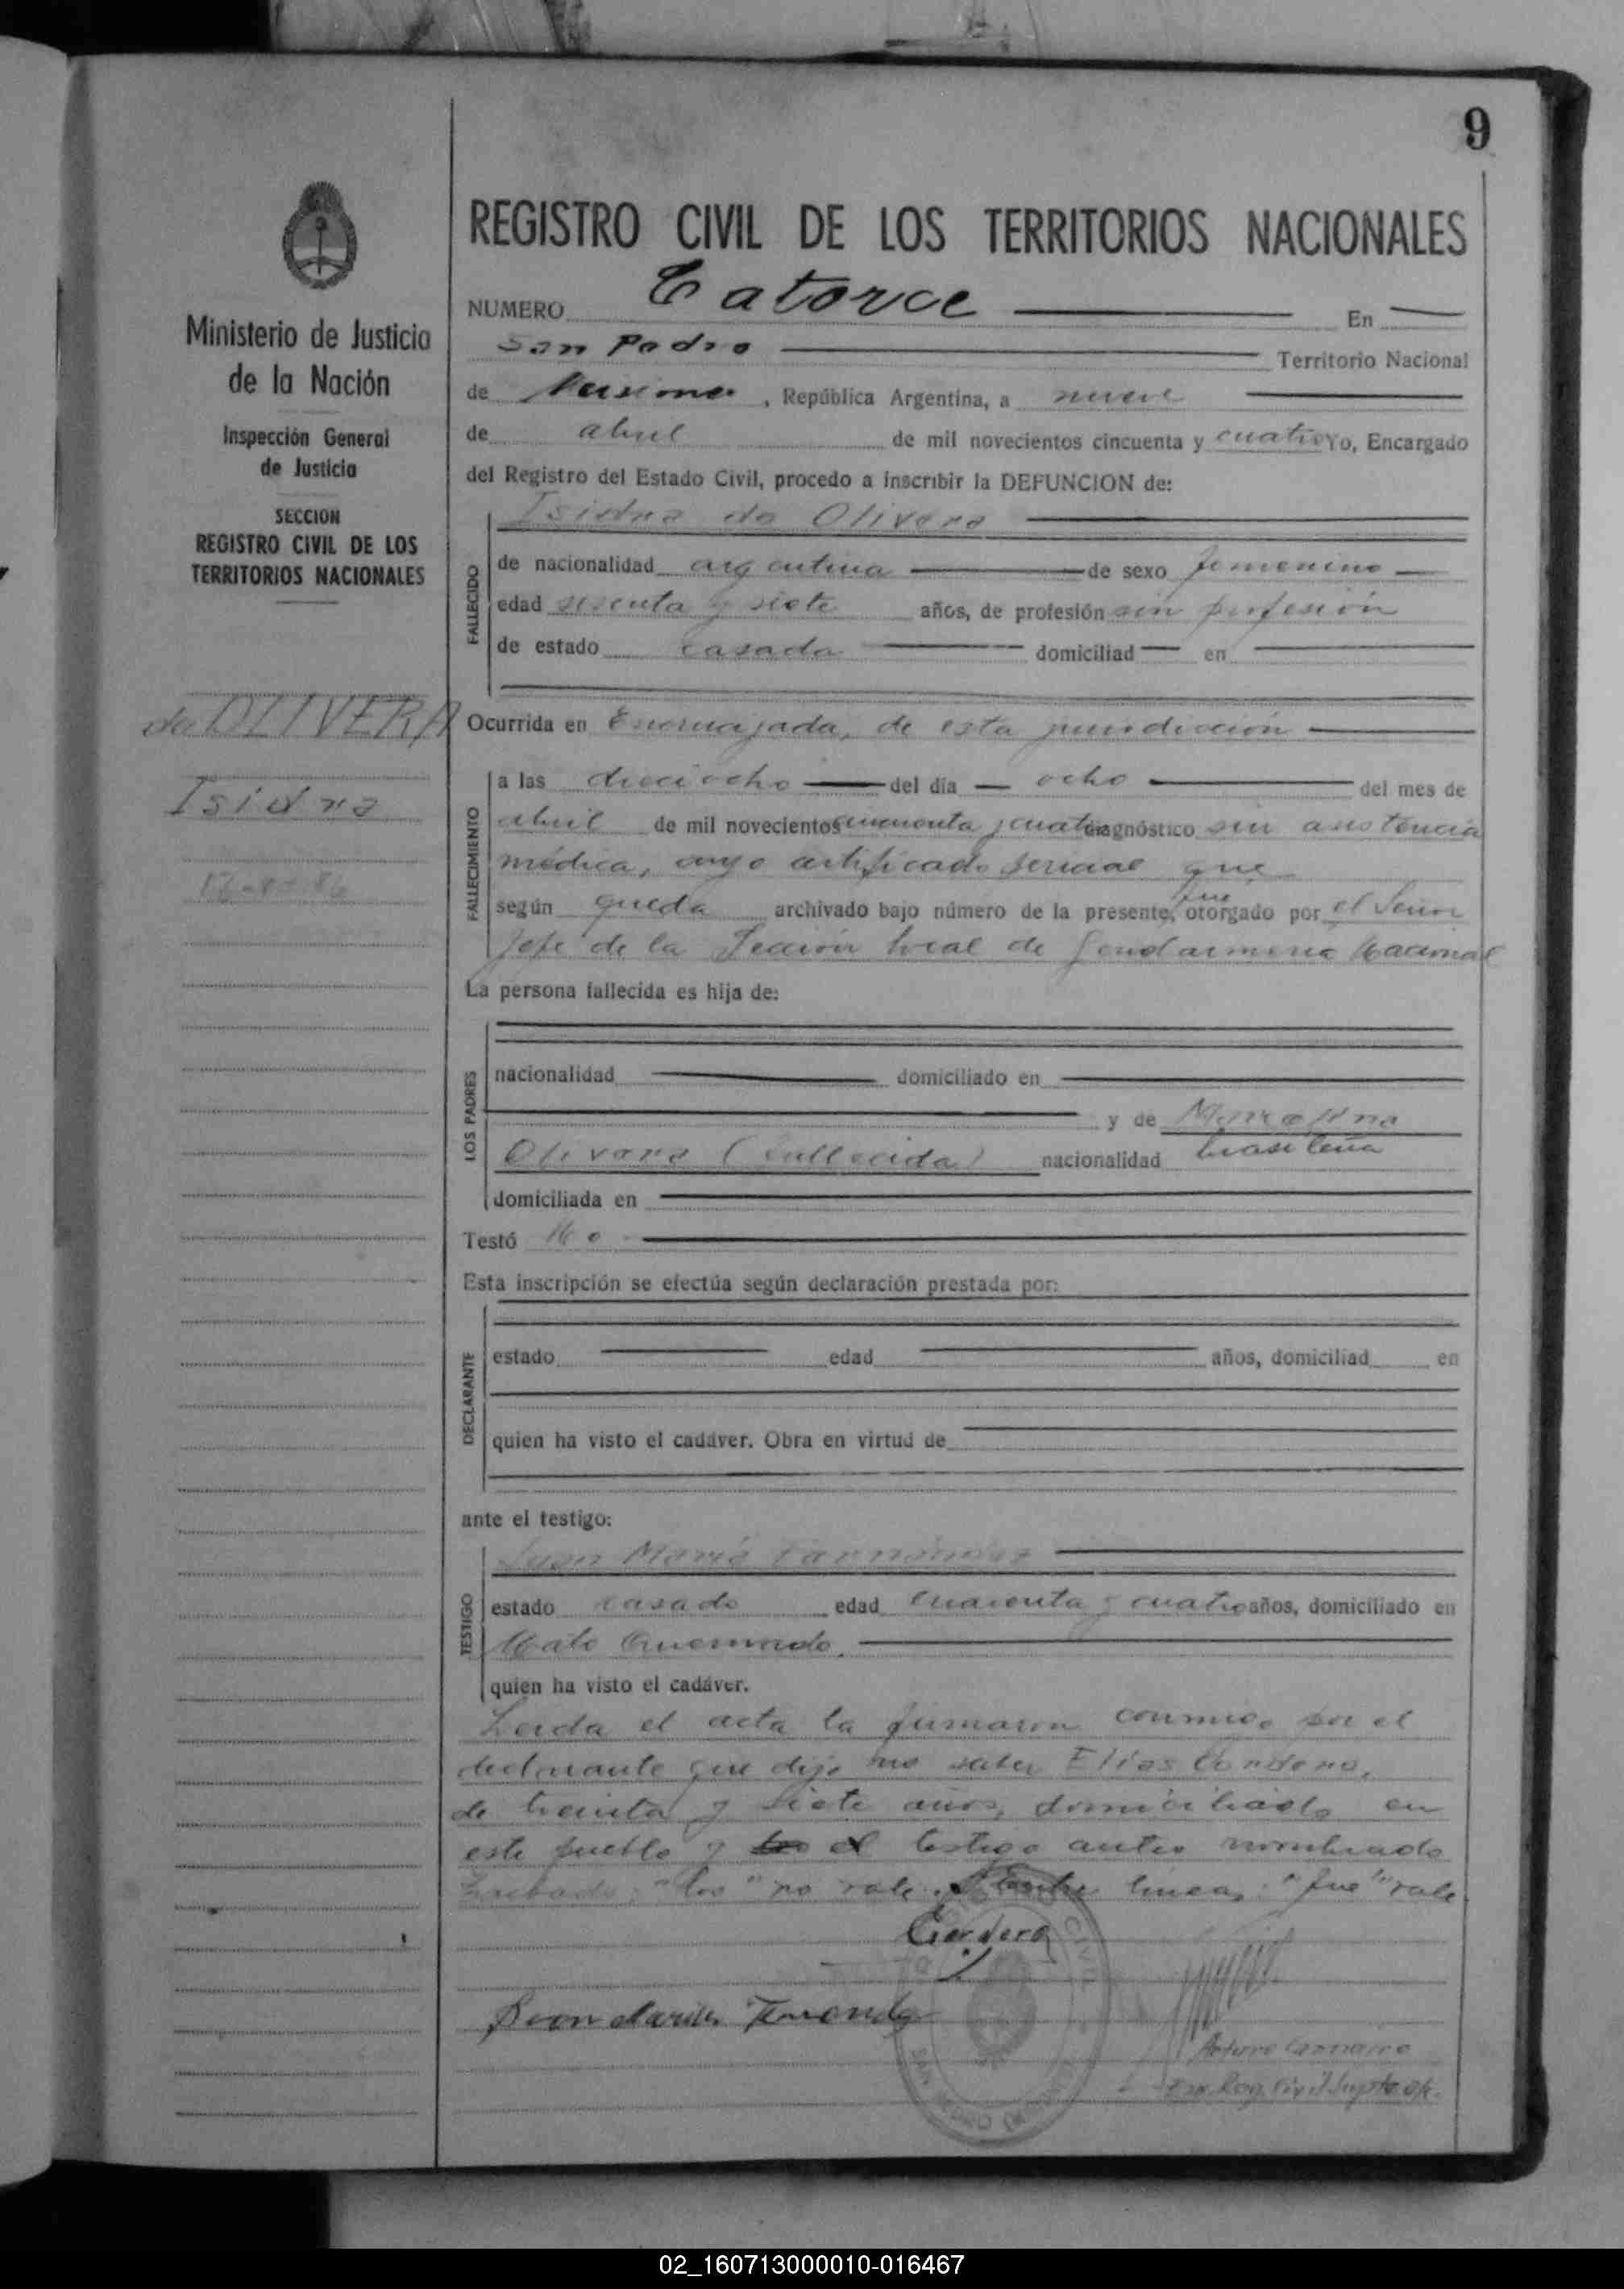 9
REGISTRO CIVIL DE LOS TERRITORIOS NACIONALES
Ministerio de Justicia
de la Nación
Inspección General
de Justicia
SECCION
REGISTRO CIVIL DE LOS
TERRITORIOS NACIONALES
de OLIVERA
Isidra
NUMERO Catorce En
San Pedro Territorio Nacional
de Misiones, República Argentina, a nueve
de abril de mil novecientos cincuenta y cuatro Yo, Encargado
del Registro del Estado Civil, procedo a inscribir la DEFUNCION de:
Isidra de Olivera
FALLECIDO
de nacionalidad argentina de sexo femenino
edad sesenta y siete años, de profesión sin profesión
de estado casada domiciliad en
Ocurrida en Encrucijada, de esta jurisdicción
FALLECIMIENTO
a las dieciocho del día ocho del mes de
abril de mil novecientos cincuenta y cuatro diagnóstico sin asistencia
médica, cuyo certificado que
según queda archivado bajo número de la presente, fue otorgado por el Señor
Jefe de la Sección local de Gendarmería Nacional
La persona fallecida es hija de:
LOS PADRES
nacionalidad domiciliado en
y de
Olivera (fallecida) nacionalidad brasileña
domiciliada en
Testó No
Esta inscripción se efectúa según declaración prestada por:
DECLARANTE
estado edad años, domiciliad en
quien ha visto el cadáver. Obra en virtud de
ante el testigo:
TESTIGO
Juan María Fernández
estado casado edad cuarenta y cuatro años, domiciliado en
Mato Quemado.
quien ha visto el cadáver.
Leida el acta la firmaron conmigo por el
declarante que dijo no saber Elías Cordero,
de treinta y siete años, domiciliado en
este pueblo y los el testigo antes nombrado
Testado: "los" no vale. Entre líneas: "fue" vale.
Cordero
02_160713000010-016467